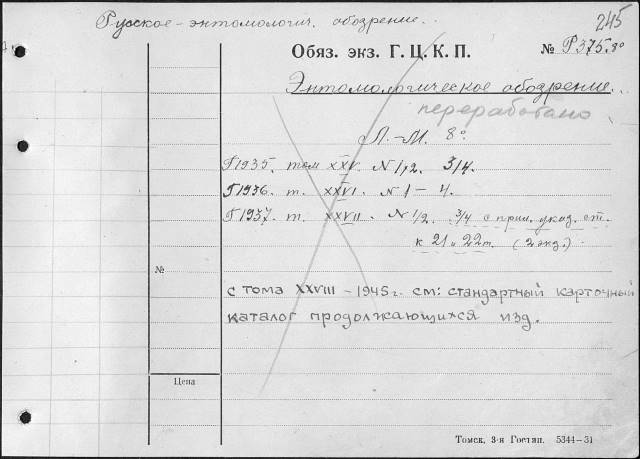 Русское-энтомологич. обозрение.
245
Обяз. экз. Г. Ц. К. П. № Р375.80
Энтомологическое обозрение.
переработано
Л.-М. 8°
Г1935. том XXV. N 1,2. 3/4.
Г1936. т. XXVI. N 1-4.
Г1937. т. XXVII. N 1/2. 3/4 с прил. указ. ст.
к 21 и 22 т. (2 экз.).
№
с тома XXVIII - 1945 г. см: стандартный карточный
каталог продолжающихся изд.
Цена
Томск, 3-я Гостип. 5344-31